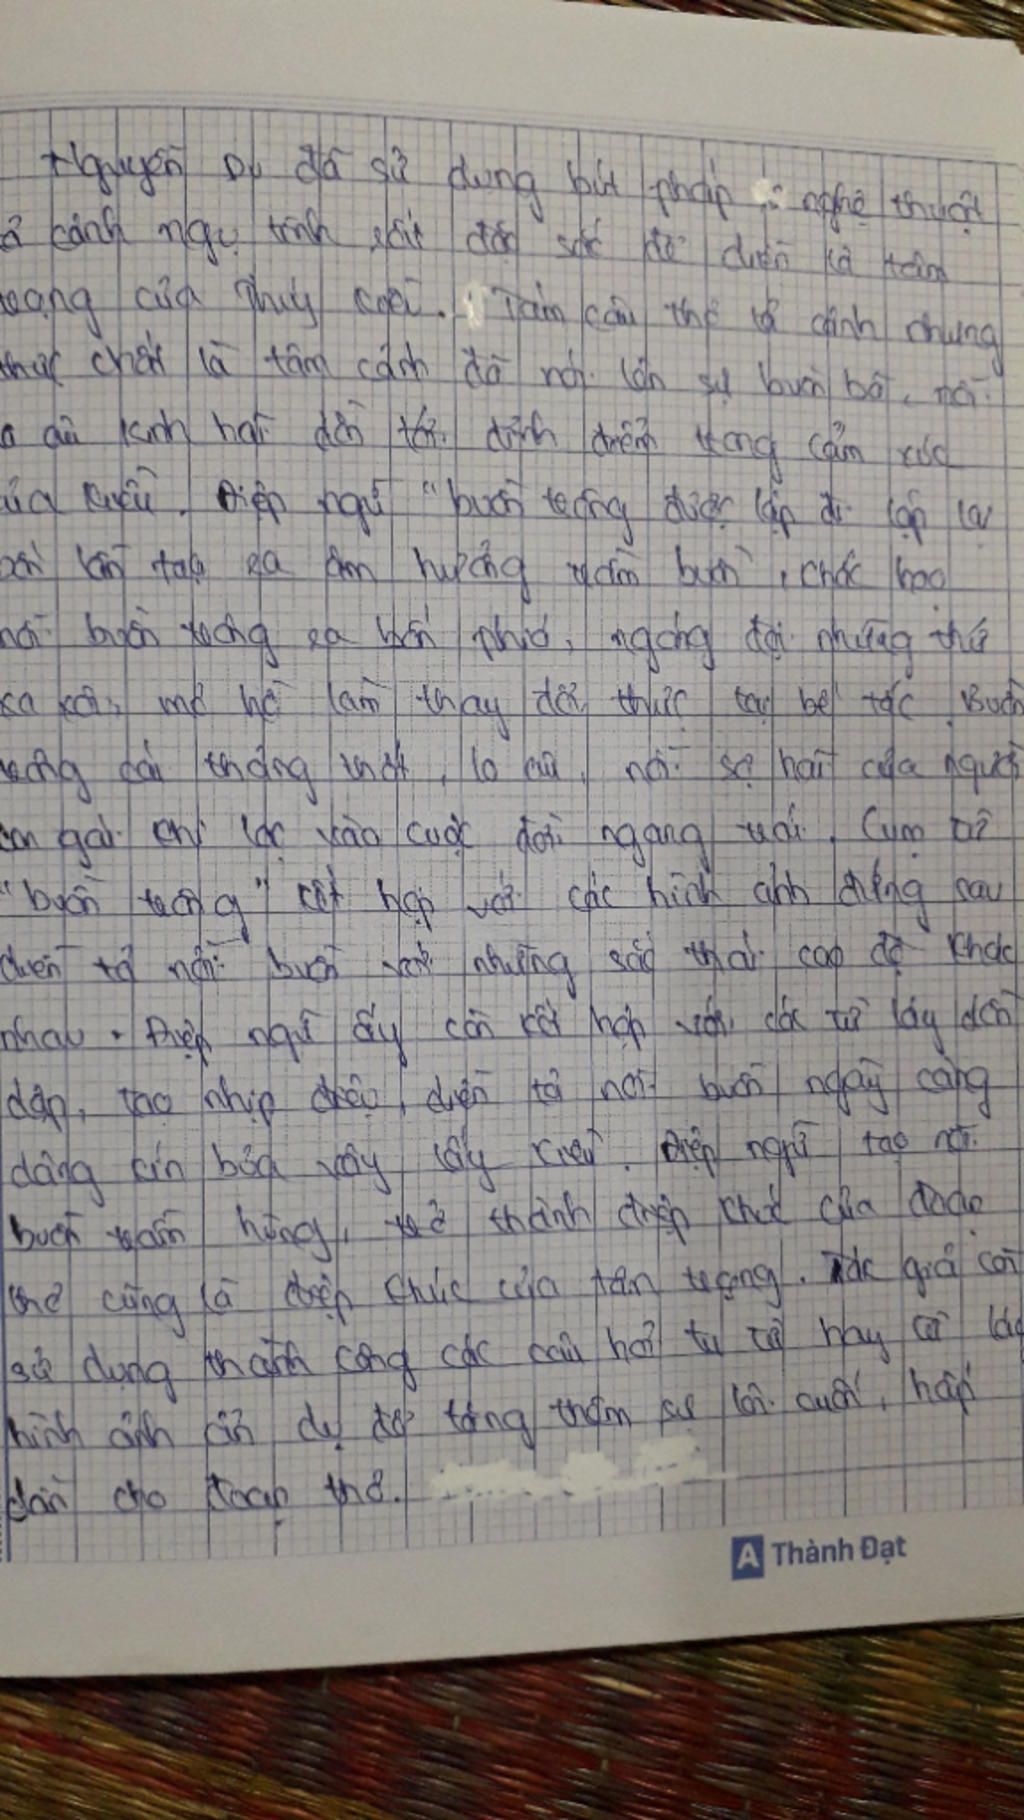 + Nguyễn Du đã sử dụng bút pháp nghệ thuật
ả cảnh ngụ tình rất đặc sắc để diễn tả tâm
rạng của Thúy Kiều. Tám câu thơ tả cảnh nhưng
thực chất là tâm cảnh đã nói lên sự buồn bã, nỗi
o âu kinh hãi dồn tới đỉnh điểm trong cảm xúc
ủa Kiều. Điệp ngữ "buồn trông được lặp đi lặp lại
lần tạo ra âm hưởng trầm buồn,
nỗi buồn trông ra bốn phía, ngóng đợi những thứ
xa xôi, mơ hồ làm thay đổi thực tại bế tắc. Buồn
rông cái thảng thốt, lo âu, nỗi sợ hãi của người
on gái lạc vào cuộc đời ngang trái. Cụm từ
"buồn trông" kết hợp với các hình ảnh đứng sau
diễn tả nỗi buồn với những sắc thái cao độ khác
nhau. Điệp ngữ ấy còn kết hợp với các từ láy dồn
dập, tạo nhịp điệu, diễn tả nỗi buồn ngày càng
dâng kín bủa vây lấy Kiều. Điệp ngữ tạo nỗi
buồn trầm hùng, trở thành điệp khúc của đoạn
thơ cũng là điệp khúc của tâm trạng. Tác giả còn
sử dụng thành công các câu hỏi tu từ hay từ láy
hình ảnh ẩn dụ để tăng thêm sự lôi cuốn, hấp
dẫn cho đoạn thơ.
A Thành Đạt